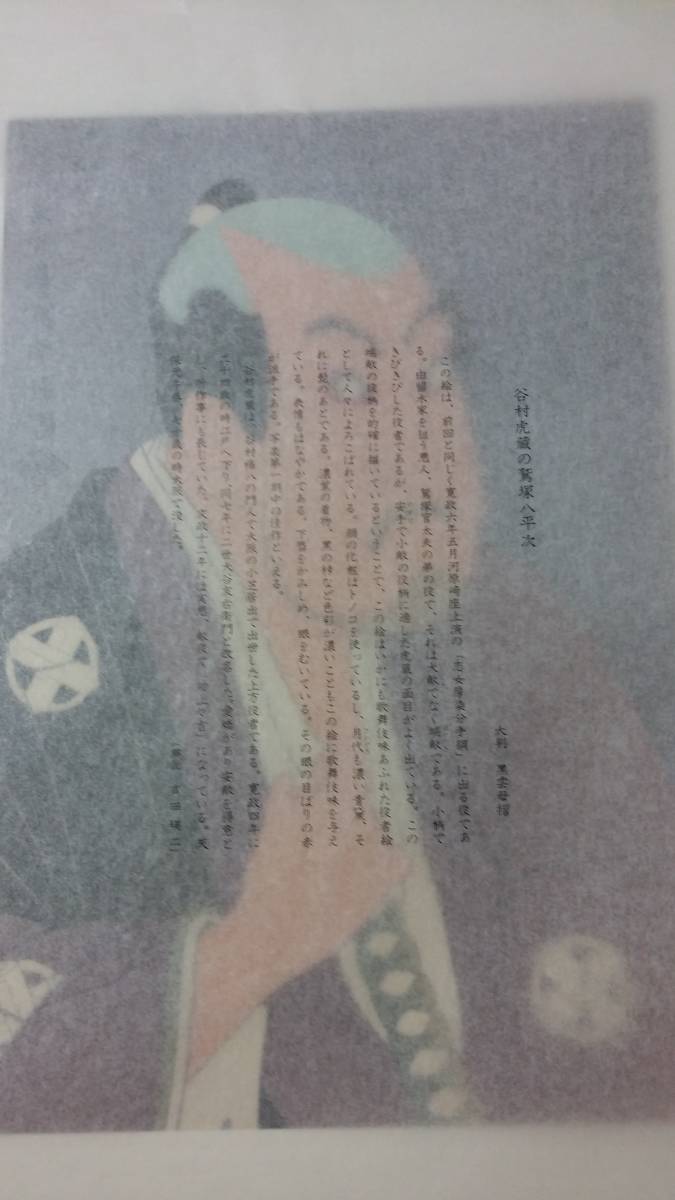 谷村虎蔵の鷲塚八平次
大判 黒雲母摺
この絵は、前回と同じく寛政六年五月河原崎座上演の「恋女房染分手綱」に出る役であ
る。由留木家を狙う悪人、鷲塚官太夫の弟の役で、それは大敵でなく端敵である。小柄で
きびきびした役者であるが、安手で小敵の役柄に適した虎蔵の面目がよく出ている。この
端敵の役柄を的確に描いているということで、この絵はいかにも歌舞伎味あふれた役者絵
として人々によろこばれている。顔の化粧はトノコを使っているし、月代も濃い青黛、そ
れに髭のあとである。濃紫の着物、黒の裃など色彩が濃いこともこの絵に歌舞伎味を与え
ている。表情もはなやかである。下唇をかみしめ、眼をむいている。その眼の目ばりの赤
が派手である。写楽第一期中の佳作といえる。
谷村虎蔵は、谷村楯八の門人で大阪の小芝居出で出世した上方役者である。寛政四年に
二十四歳の時江戸へ下り、同七年に二世大谷友右衛門と改名した。愛嬌があり安敵を得意と
し、所作事にも長じていた。文政十二年には実悪、敵役で になっている。天
保元年 歳の時大阪で没した。
吉田 暎二